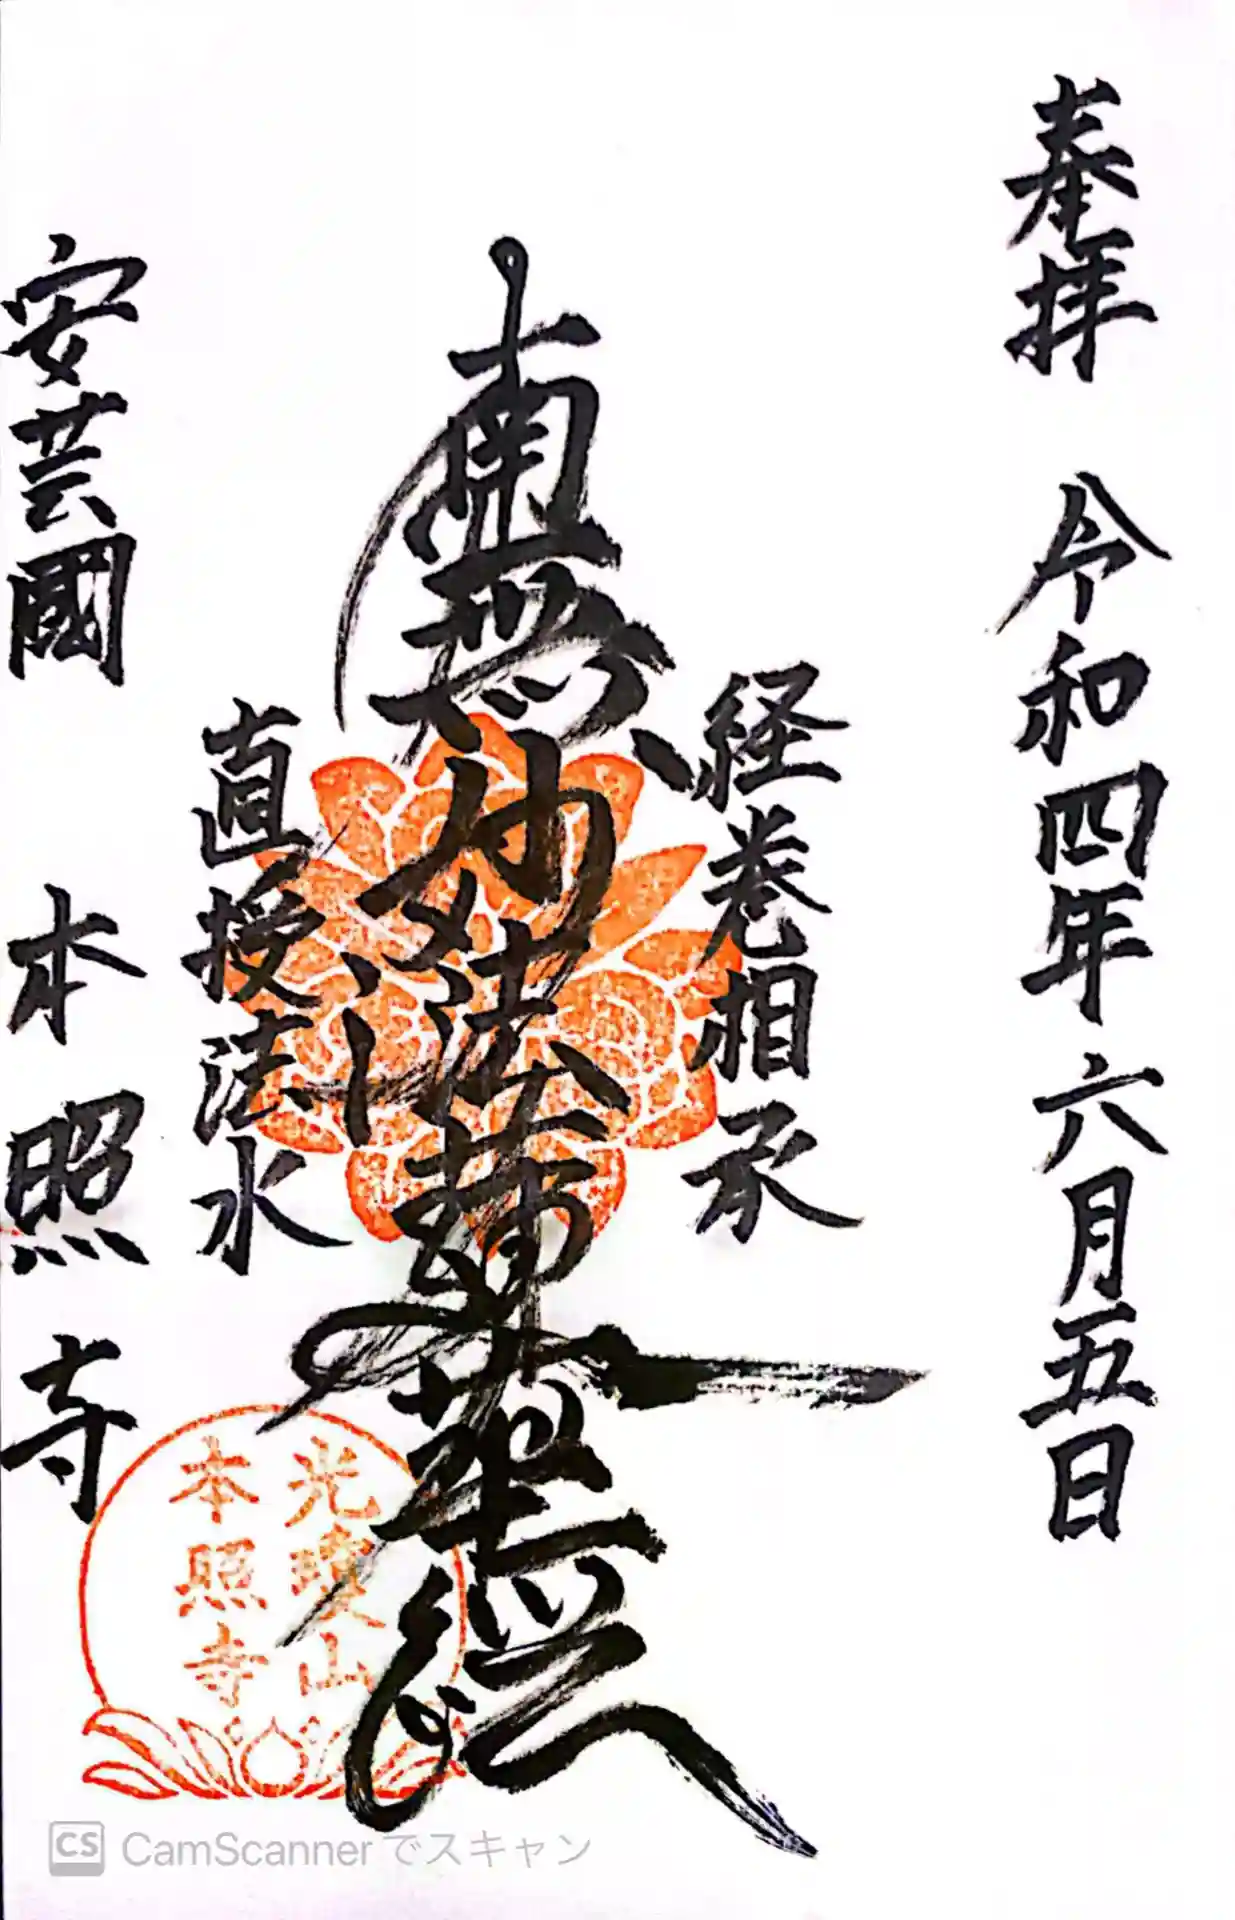 奉拝 令和四年六月五日
経巻相承
南無妙法蓮華経
直授法水
安芸國 本照寺
光暁山
本照寺
CS CamScannerでスキャン